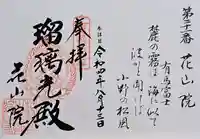 第十二番 花山院
有馬富士
麓の霧は海に似て
波かと聞けば
小野の松風
令和四年八月十三日
奉拝
瑠璃光殿
花山院